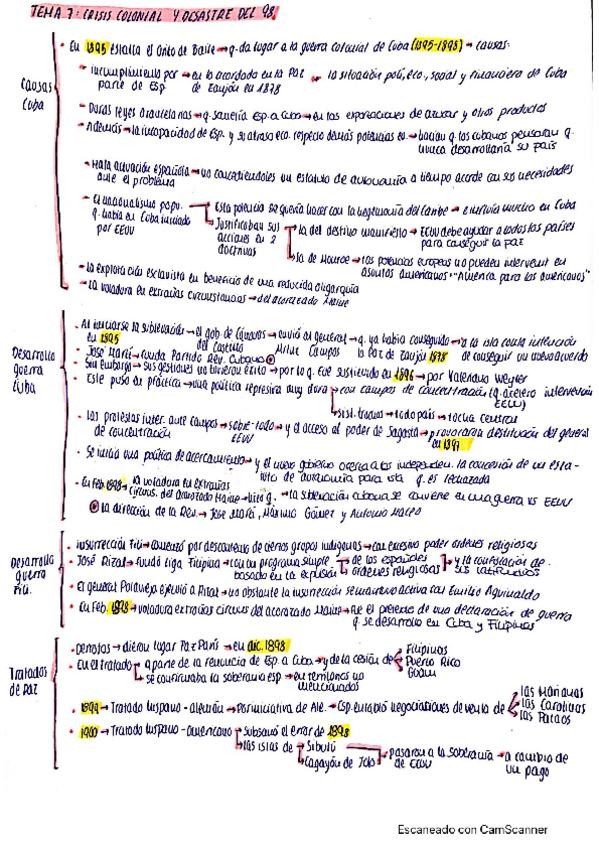 TEMA 7: CRISIS COLONIAL Y DESASTRE DEL 98.
Causas
Cuba
• En 1895 estalla el Grito de Baire → q. da lugar a la guerra colonial de Cuba (1895-1898) → causas:
- incumplimiento por parte de Esp. → en lo acordado en la Paz de Zanjón en 1878 → la situación polí, eco, social y financiera de Cuba
- Duras leyes arancelarias → q. sometía Esp. a Cuba → en las exportaciones de azúcar y otros productos
- Además → la incapacidad de Esp. y su atraso eco. respecto demás potencias eu. → hacían q. los cubanos pensaran q. nunca desarrollaría su país
- Mala actuación española ante el problema → no concediendoles un estatuto de autonomía a tiempo acorde con sus necesidades
- El nacionalismo popu. q. había en Cuba iniciado por EEUU
Esta potencia se quería hacer con la hegemonía del Caribe → e invirtió mucho en Cuba
Justificaban sus acciones en 2 doctrinas
la del destino manifiesto → EEUU debe ayudar a todos los países para conseguir la paz
la de Monroe → las potencias europeas no pueden intervenir en asuntos americanos "América para los americanos"
- La explotación esclavista en beneficio de una reducida oligarquía
- La voladura en extrañas circunstancias → del acorazado Maine
Desarrollo
guerra
Cuba
• Al iniciarse la sublevación en 1895 → el gob. de Cánovas del Castillo → envió al general Mtnez Campos → q. ya había conseguido la Paz de Zanjón 1878 → a la isla con la intención de conseguir un nuevo acuerdo
• José Martí → funda Partido Rev. Cubano
• Sin embargo → sus gestiones no tuvieron éxito → por lo q. fue sustituido en 1896 → por Valeriano Weyler
• Este puso en práctica → una política represiva muy dura → con campos de concentración (q. aceleró intervención EEUU)
→ sist. trochas → todo país → trocha central
• Las protestas inter. ante campos de concentración → sobre todo EEUU → y el acceso al poder de Sagasta → provocaron destitución del general en 1897
• Se inició una política de acercamiento → y el nuevo gobierno ofrecía a los independen. la concesión de un estatuto de autonomía para isla q. es rechazada
• En Feb. 1898 → la voladura en extrañas circuns. del acorazado Maine → hizo q. → la sublevación cubana se convierte en una guerra vs EEUU
la dirección de la Rev. → José Martí, Máximo Gómez y Antonio Maceo
Desarrollo
guerra
Fili.
• insurrección Fili → comenzó por descontento de ciertos grupos indígenas → con excesivo poder órdenes religiosas
• José Rizal → fundó Liga Filipina → con un programa simple basado en la expulsión → de los españoles órdenes religiosas → y la confiscación de sus latifundios
• El general Polavieja ejecutó a Rizal → no obstante la insurrección se mantuvo activa con Emilio Aguinaldo
• En Feb. 1898 → voladura extrañas circuns del acorazado Maine → fue el pretexto de una declaración de guerra q. se desarrolló en Cuba y Filipinas
Tratados
de Paz
• Derrotas → dieron lugar Paz París → en dic. 1898
• En el tratado → a parte de la renuncia de Esp. a Cuba → y de la cesión de Filipinas Puerto Rico Guam
→ se confirmaba la soberanía esp → en territorios no mencionados
• 1899 → Tratado hispano-alemán → por iniciativa de Ale. → Esp. entabló negociaciones de venta de las Marianas las Carolinas las Palaos
• 1900 → Tratado hispano-americano → subsanó el error de 1898
→ las islas de Sibutú Cagayán de Joló → pasaron a la soberanía de EEUU → a cambio de un pago
Escaneado con CamScanner